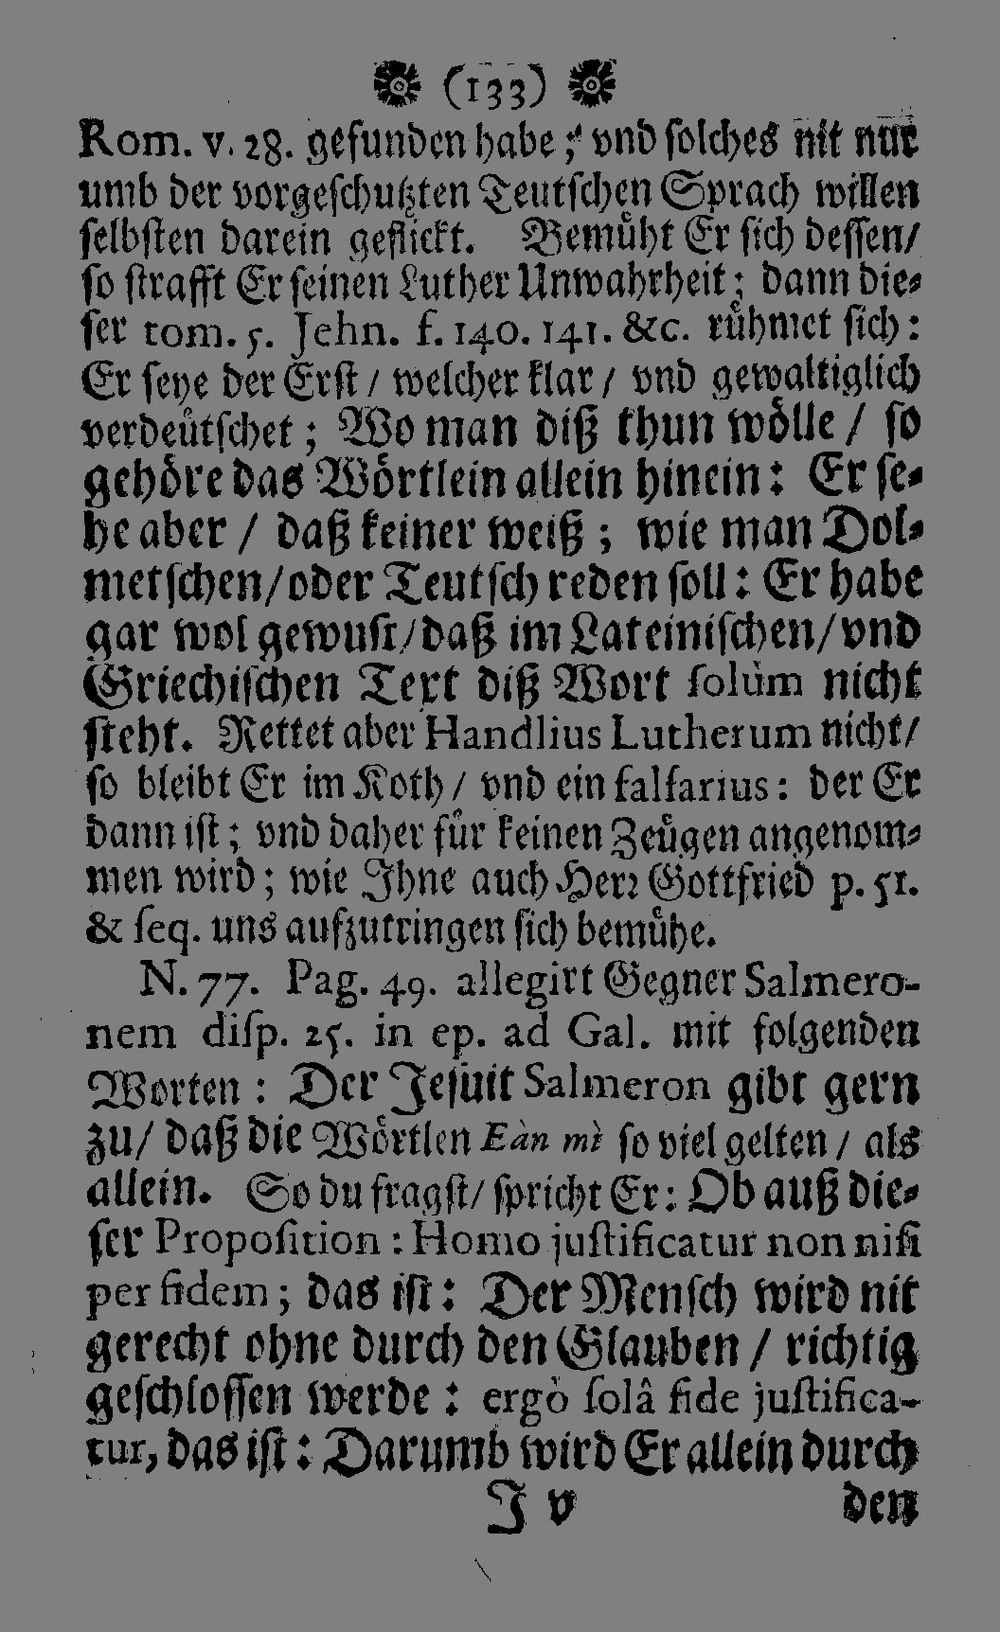 (133)
Rom. v. 28. gefunden habe; vnd ſolches nit nur
umb der vorgeſchutzten Teutſchen Sprach willen
ſelbſten darein geflickt. Bemuͤht Er ſich deſſen/
ſo ſtrafft Er ſeinen Luther Unwahrheit; dann die⸗
ſer tom. 5. Jehn. f. 140. 141. &c. ruͤhmet ſich:
Er ſeye der Erſt / welcher klar / vnd gewaltiglich
verdeuͤtſchet; Wo man diß thun woͤlle / ſo
gehoͤre das Woͤrtlein allein hinein: Er ſe⸗
he aber / daß keiner weiß; wie man Dol⸗
metſchen/oder Teutſch reden ſoll: Er habe
gar wol gewuſt/daß im Lateiniſchen/vnd
Griechiſchen Text diß Wort ſolùm nicht
ſteht. Rettet aber Handlius Lutherum nicht/
ſo bleibt Er im Koth / vnd ein falſarius: der Er
dann iſt; vnd daher fuͤr keinen Zeuͤgen angenom⸗
men wird; wie Ihne auch Herꝛ Gottfried p. 51.
& ſeq. uns aufzutringen ſich bemuͤhe.
N. 77. Pag. 49. allegirt Gegner Salmero-
nem diſp. 25. in ep. ad Gal. mit folgenden
Worten: Der Jeſuit Salmeron gibt gern
zu/ daß die Woͤrtlen Eàn mì ſo viel gelten / als
allein. So du fragſt/ ſpricht Er: Ob auß die⸗
ſer Propoſition: Homo juſtificatur non niſi
per fidem; das iſt: Der Menſch wird nit
gerecht ohne durch den Glauben / richtig
geſchloſſen werde: ergò ſolâ fide juſtifica-
tur, das iſt: Darumb wird Er allein durch
J v den